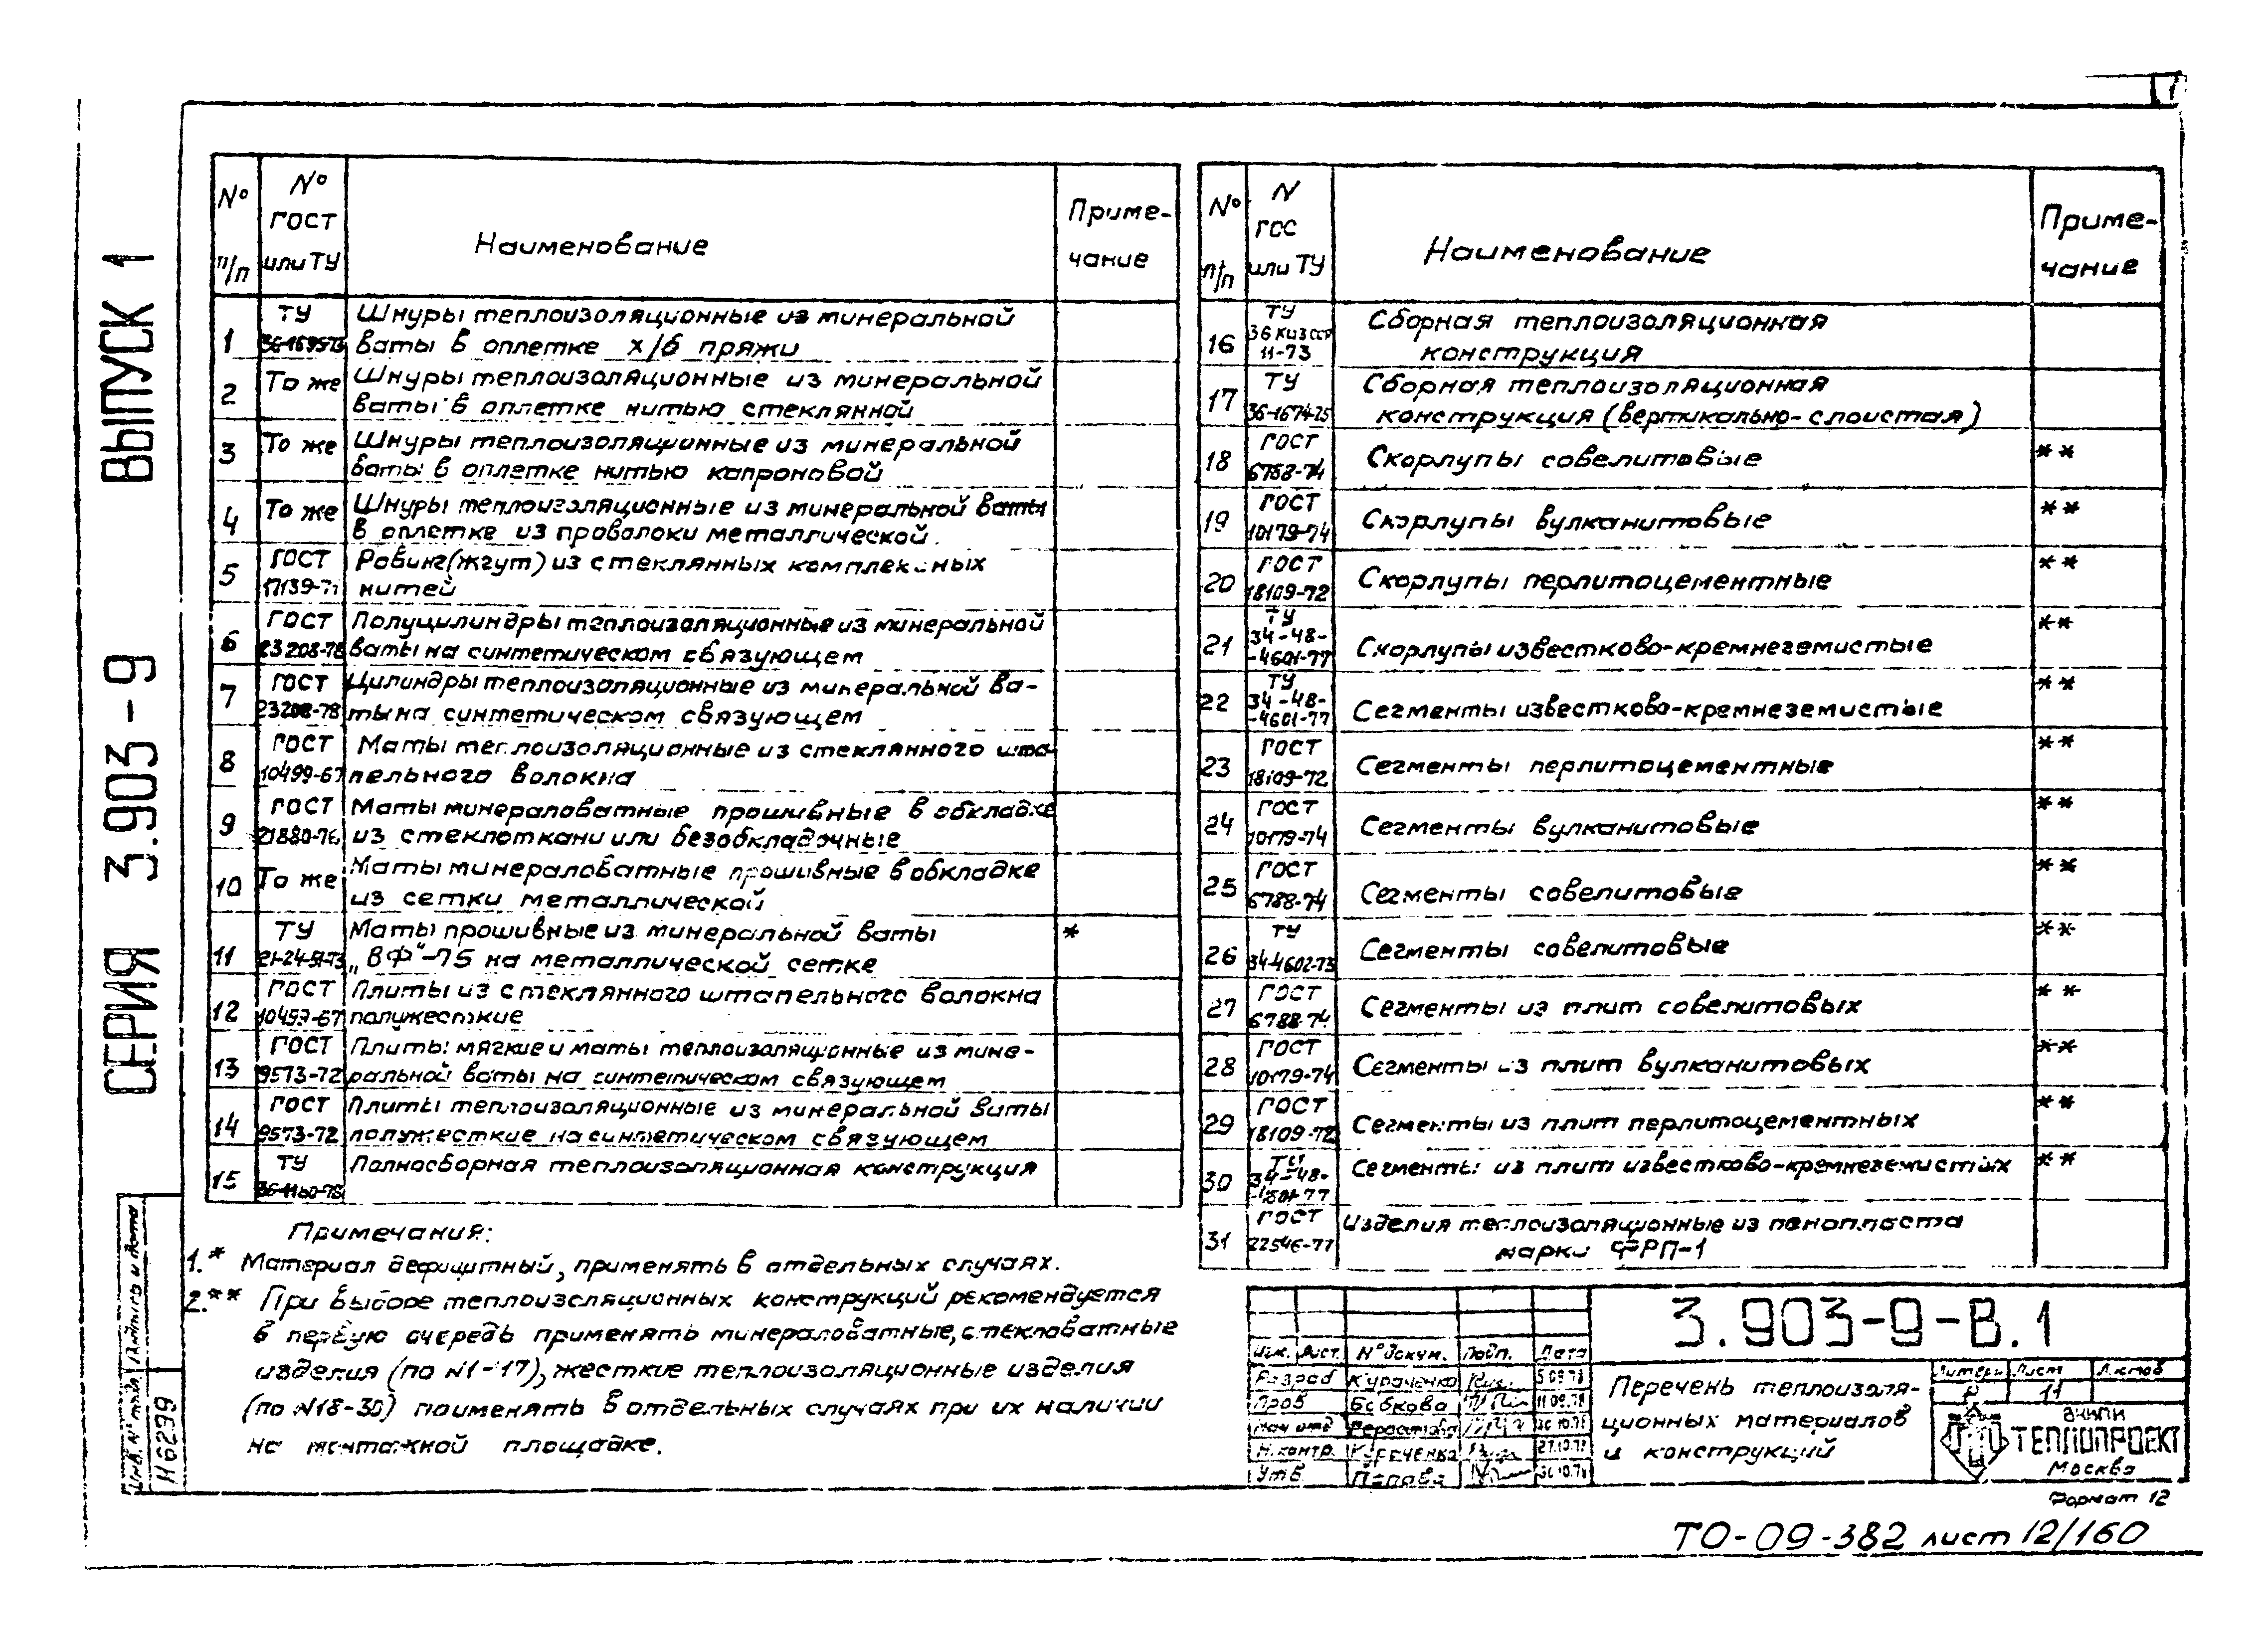 1
СЕРИЯ 3.903-9 ВЫПУСК 1
№ п/п
№ ГОСТ или ТУ
Наименование
Приме-
чание
1 ТУ Шнуры теплоизоляционные из минеральной
36-1695-73 ваты в оплетке х/б пряжи
2 То же Шнуры теплоизоляционные из минеральной
ваты в оплетке нитью стеклянной
3 То же Шнуры теплоизоляционные из минеральной
ваты в оплетке нитью капроновой
4 То же Шнуры теплоизоляционные из минеральной ваты
в оплетке из проволоки металлической.
5 ГОСТ Ровинг (жгут) из стеклянных комплексных
17139-71 нитей
6 ГОСТ Полуцилиндры теплоизоляционные из минеральной
23208-78 ваты на синтетическом связующем
7 ГОСТ Цилиндры теплоизоляционные из минеральной ва-
23208-78 ты на синтетическом связующем
8 ГОСТ Маты теплоизоляционные из стеклянного шта-
10499-67 пельного волокна
9 ГОСТ Маты минераловатные прошивные в обкладке
21880-76 из стеклоткани или безобкладочные
10 То же Маты минераловатные прошивные в обкладке
из сетки металлической
11 ТУ Маты прошивные из минеральной ваты *
21-24-51-73 „ВФ“-75 на металлической сетке
12 ГОСТ Плиты из стеклянного штапельного волокна
10499-67 полужесткие
13 ГОСТ Плиты мягкие и маты теплоизоляционные из мине-
9573-72 ральной ваты на синтетическом связующем
14 ГОСТ Плиты теплоизоляционные из минеральной ваты
9573-72 полужесткие на синтетическом связующем
15 ТУ Полносборная теплоизоляционная конструкция
36-1180-78
Примечания:
1.* Материал дефицитный, применять в отдельных случаях.
2.** При выборе теплоизоляционных конструкций рекомендуется
в первую очередь применять минераловатные, стекловатные
изделия (по N1-17), жесткие теплоизоляционные изделия
(по N18-30) применять в отдельных случаях при их наличии
на монтажной площадке.
№ п/п
N ГОС или ТУ
Наименование
Приме-
чание
16 ТУ Сборная теплоизоляционная
36 Киз ССР 11-73 конструкция
17 ТУ Сборная теплоизоляционная
36-1674-75 конструкция (вертикально-слоистая)
18 ГОСТ 6788-74 Скорлупы совелитовые **
19 ГОСТ 10179-74 Скорлупы вулканитовые **
20 ГОСТ 18109-72 Скорлупы перлитоцементные **
21 ТУ 34-48--4601-77 Скорлупы известково-кремнеземистые **
22 ТУ 34-48--4601-77 Сегменты известково-кремнеземистые **
23 ГОСТ 18109-72 Сегменты перлитоцементные **
24 ГОСТ 10179-74 Сегменты вулканитовые **
25 ГОСТ 6788-74 Сегменты совелитовые **
26 ТУ 34-4602-73 Сегменты совелитовые **
27 ГОСТ 6788-74 Сегменты из плит совелитовых **
28 ГОСТ 10179-74 Сегменты из плит вулканитовых **
29 ГОСТ 18109-72 Сегменты из плит перлитоцементных **
30 ТУ 34-48--4601-77 Сегменты из плит известково-кремнеземистых **
31 ГОСТ Изделия теплоизоляционные из пенопласта
22546-77 марки ФРП-1
3.903-9-В.1
Изм. Лист. N° докум. Подп. Дата
Разраб Кураченко 5.09.78
Проб Бобкова 11.09.78
Нач отд Герасимова 30.10.78
Н.контр. Кураченко 27.10.78
Утв. Попова 30.10.78
Перечень теплоизоля-
ционных материалов
и конструкций
Литера Лист Листов
Р 11
ВНИПИ
ТЕПЛОПРОЕКТ
Москва
Формат 12
ТО-09-382 лист 12/160
Инв. N° подл. Подпись и дата
М6299